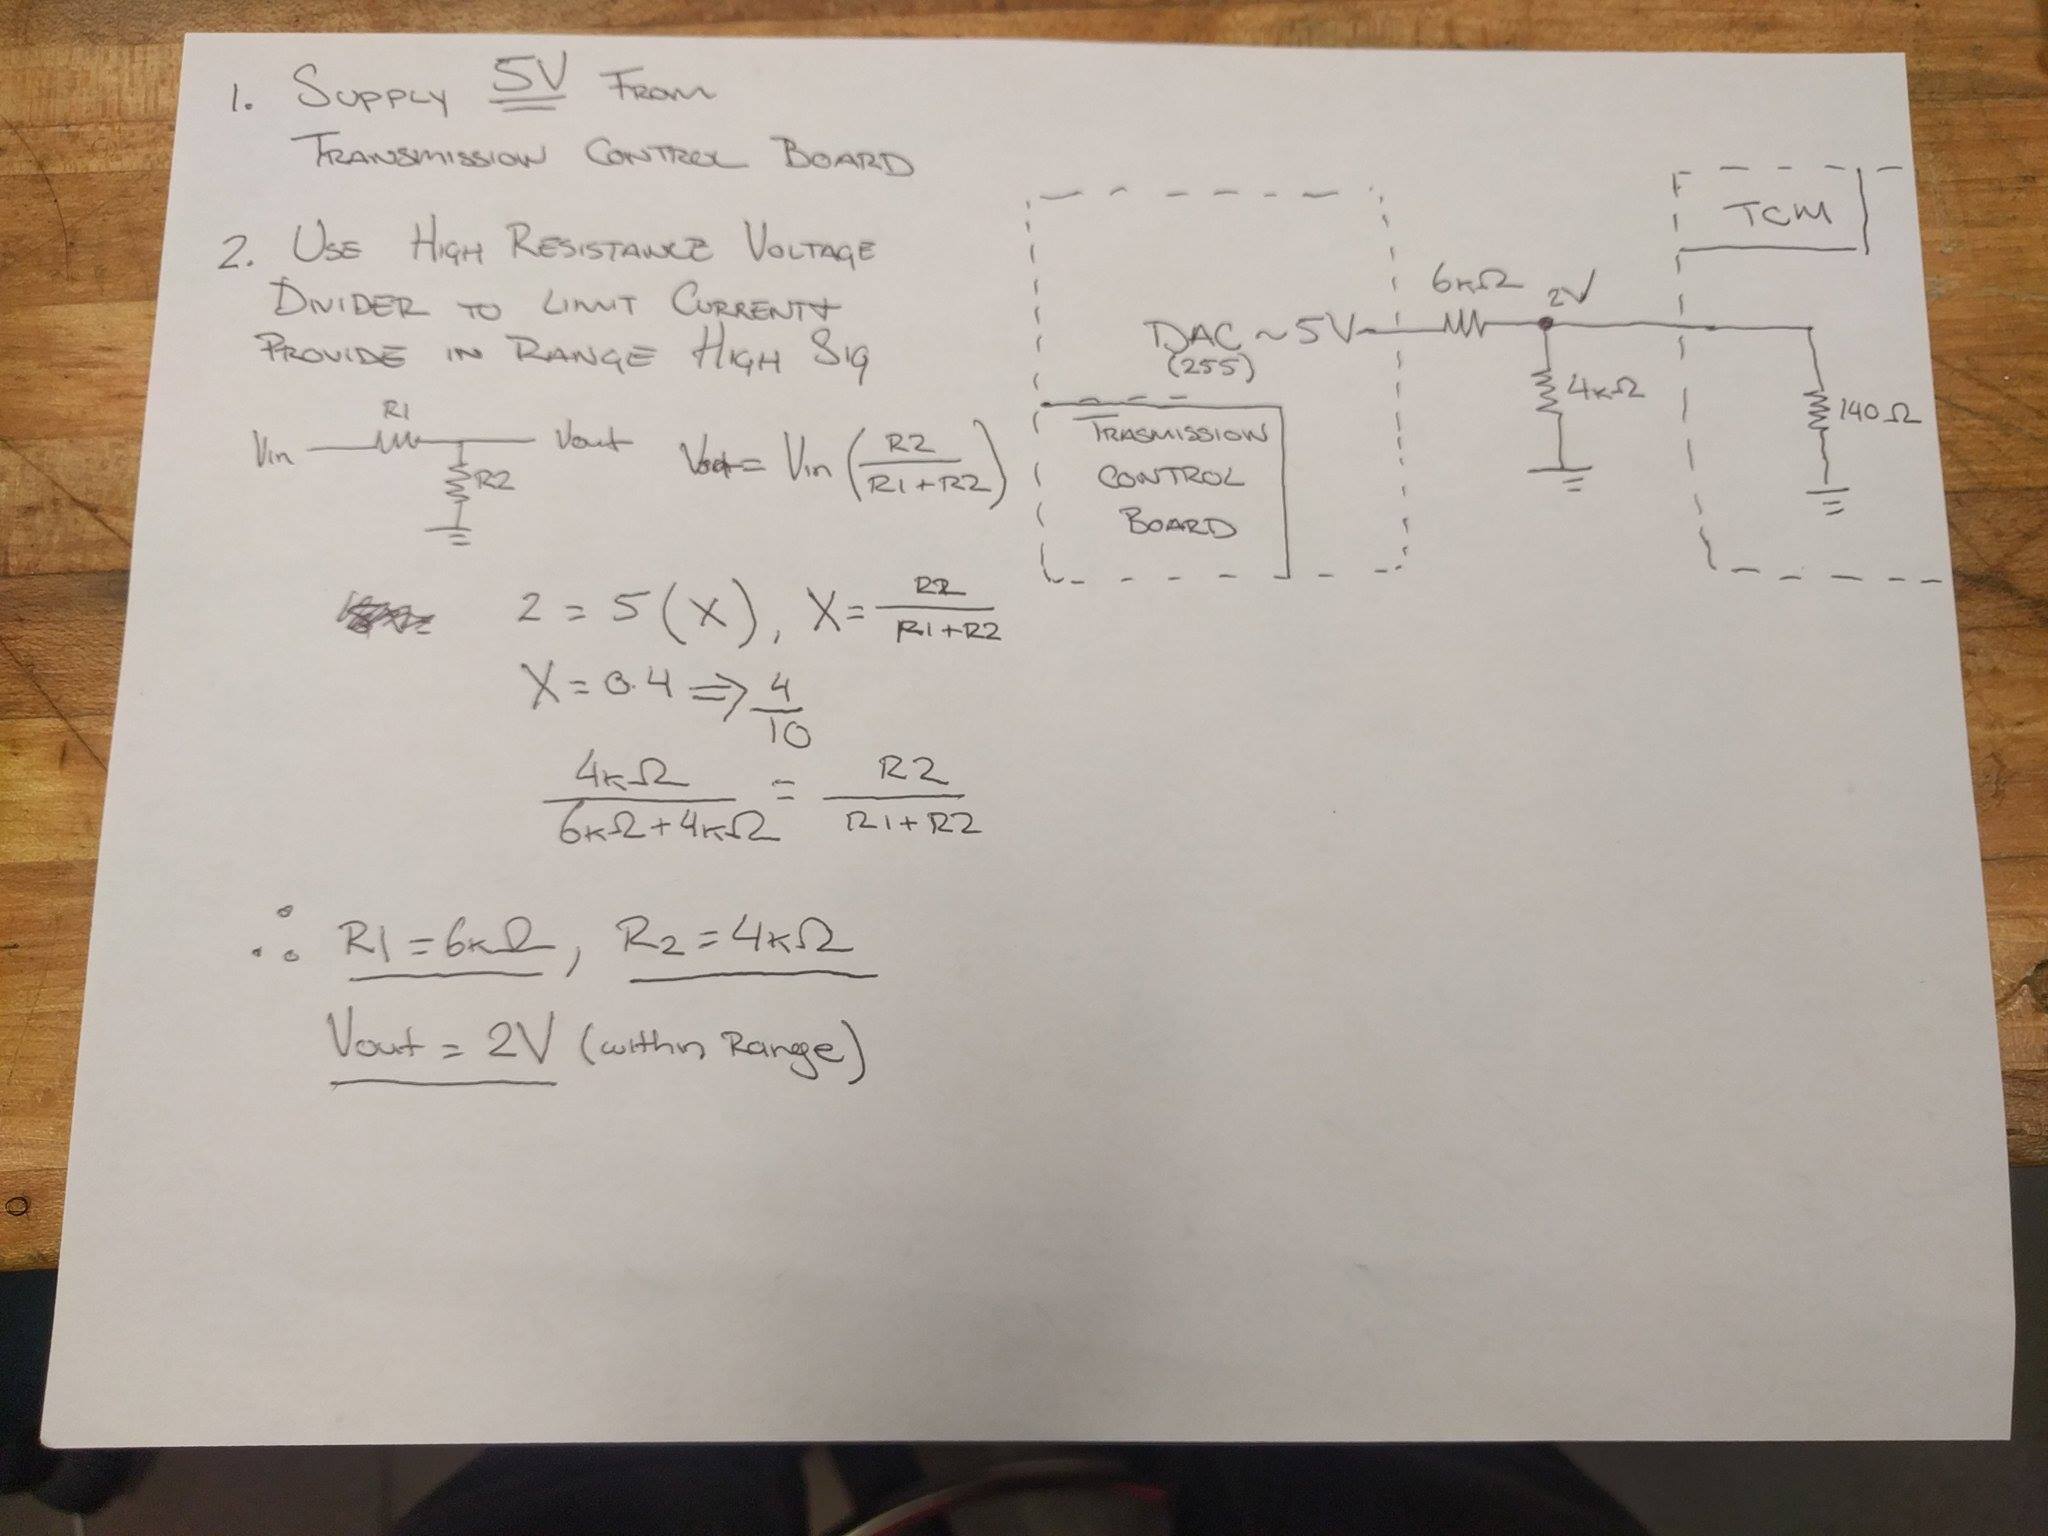 1. SUPPLY 5V FROM
TRANSMISSION CONTROL BOARD
2. USE HIGH RESISTANCE VOLTAGE
DIVIDER TO LIMIT CURRENT +
PROVIDE IN RANGE HIGH SIG
R1
Vin
Vout
R2
Vout = Vin (R2 / R1+R2)
2 = 5 (X), X = R2 / R1+R2
X = 0.4 => 4 / 10
4KΩ / 6KΩ+4KΩ = R2 / R1+R2
∴ R1 = 6KΩ, R2 = 4KΩ
Vout = 2V (within Range)
TCM
6KΩ
2V
DAC ~ 5V
(255)
4KΩ
140Ω
TRASMISSION
CONTROL
BOARD